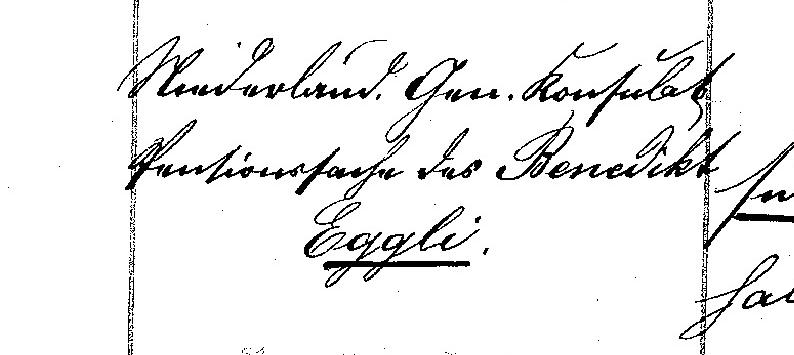 Niederländ. Gen. Konsulat
Pensionssache des Benedikt
Eggli.